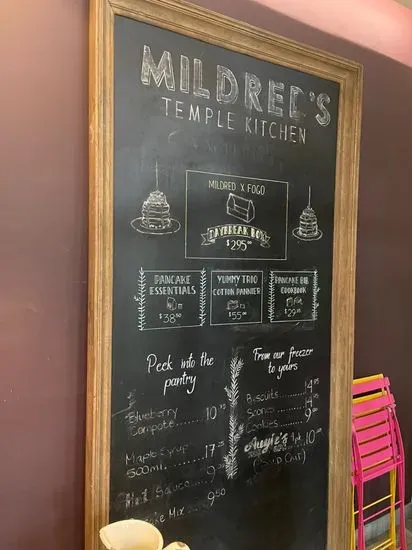 MILDRED'S
TEMPLE KITCHEN
MILDRED X FOGO
DAYBREAK BOX
$295.00
PANCAKE
ESSENTIALS
$38.50
YUMMY TRIO
COTTON PANNIER
$55.00
PANCAKE BIB
COOKBOOK
$29.95
Peek into the
pantry
Blueberry
Compote......10.75
Maple Syrup
500ml..........17.25
Sauce
9.50
Mix
From our freezer
to yours
Biscuits........14.95
Scones........14.95
Cookies........9.00
10.00